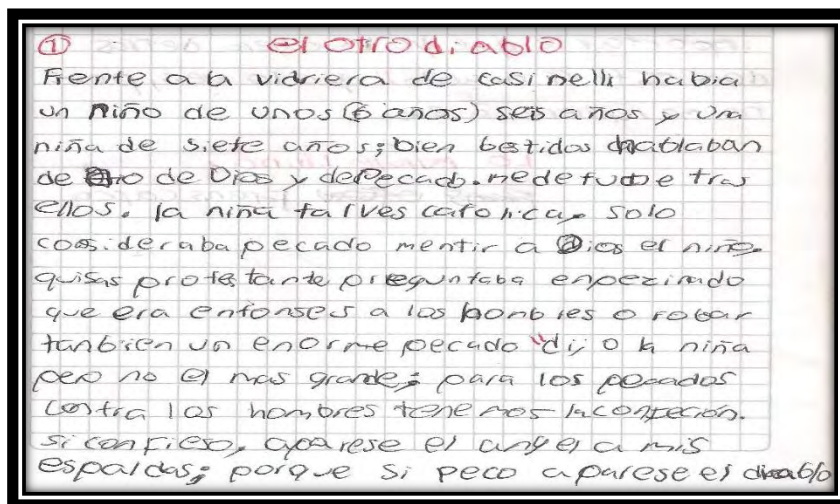 ① el otro diablo
Frente a la vidriera de casinelli habia
un niño de unos (6 años) seis años y una
niña de siete años; bien bestidos hablaban
de de Dios y de Pecado. me detube tras
ellos. la niña talves catolica, solo
consideraba pecado mentir a Dios el niño
quisas protestante preguntaba enpezinado
que era entonses a los honbres o robar
tanbien un enorme pecado "dijo la niña
pero no el mas grande; para los pecados
contra los hombres tenemos la confeción.
si confieso, aparese el angel a mis
espaldas; porque si peco aparese el diablo